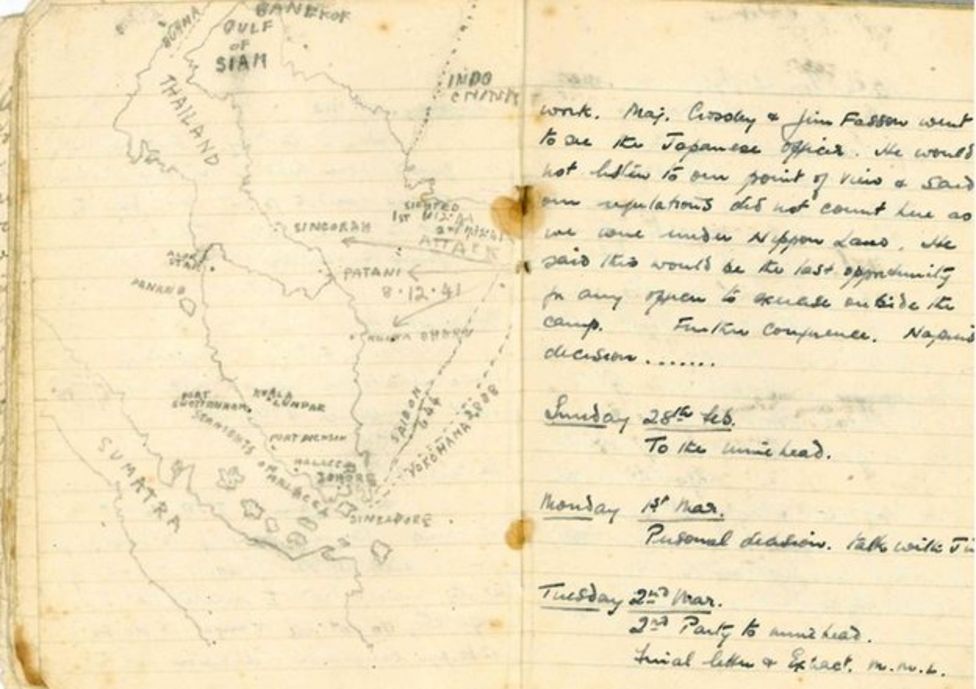 BANGKOK
BURMA
GULF
OF
SIAM
THAILAND
INDO
CHINA
SIGHTED
1ST
ATTACK
SINGORAH
ALOR
STAR
PATANI
8.12.41
PENANG
PORT
SWETTENHAM
KUALA
LUMPAR
PORT DICKSON
STRAIGHTS OF
MALACCA
JOHORE
SAIGON
644
YOKOHAMA 2008
SUMATRA
SINGAPORE
work. Maj. Crosley & Jim Fasson went
to see the Japanese officer. He would
not listen to our point of view & said
our regulations did not count here as
we were under Nippon Land. He
said this would be the last opportunity
for any officer to exercise outside the
camp. Further Conference.
decision.......
Sunday 28th Feb.
To the mine head.
Monday 1st Mar.
Personal decision. talk with
Tuesday 2nd Mar.
2nd Party to mine head.
Final letter & m.m.L.